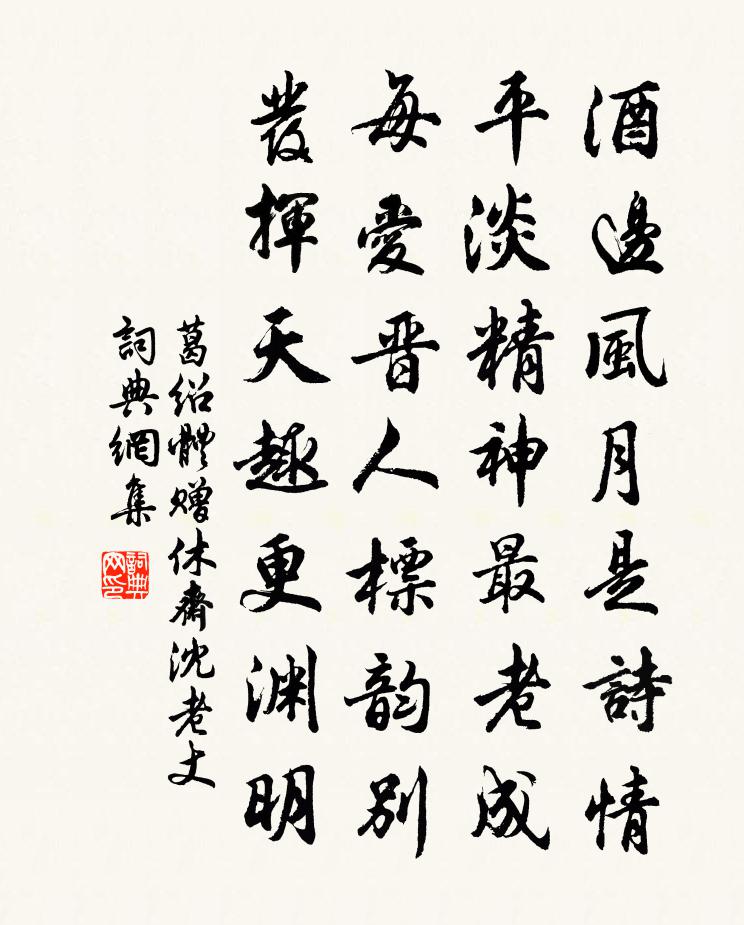 酒邊風月是詩情
平淡精神最老成
每愛晋人標韵別
發揮天趣更淵明
葛紹體贈休齋沈老丈
詞典網集
詞典
网印